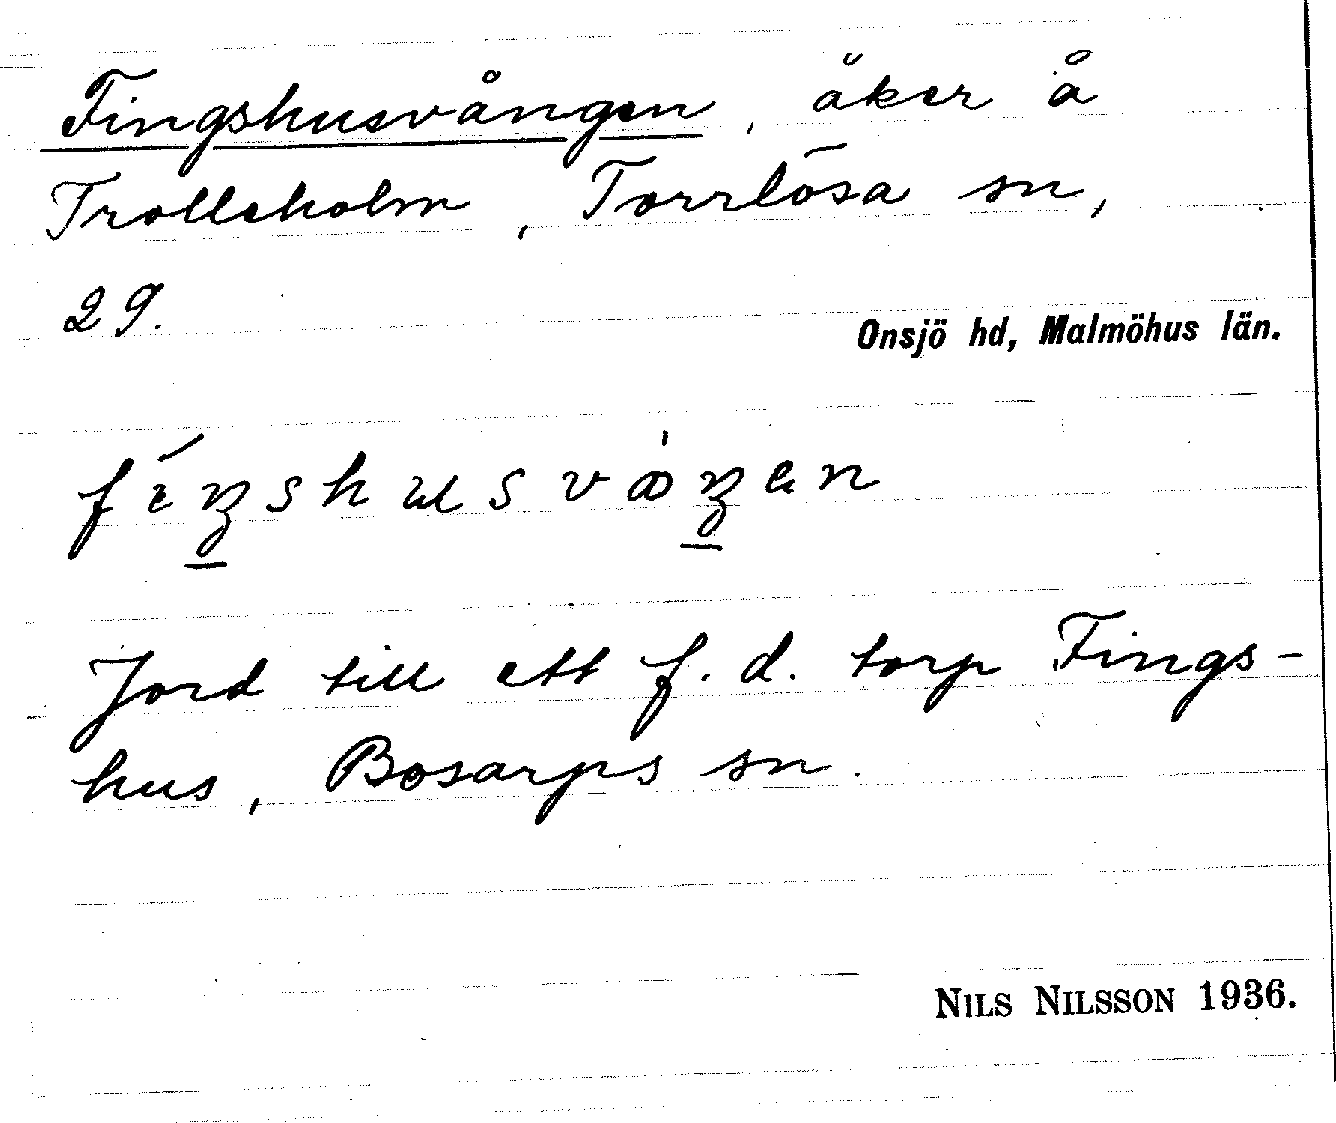 Fingshusvången, åker å
Trolleholm, Torrlösa sn,
29.
Onsjö hd, Malmöhus län.
Jord till ett f. d. torp Fings-
hus, Bosarps sn.
NILS NILSSON 1936.